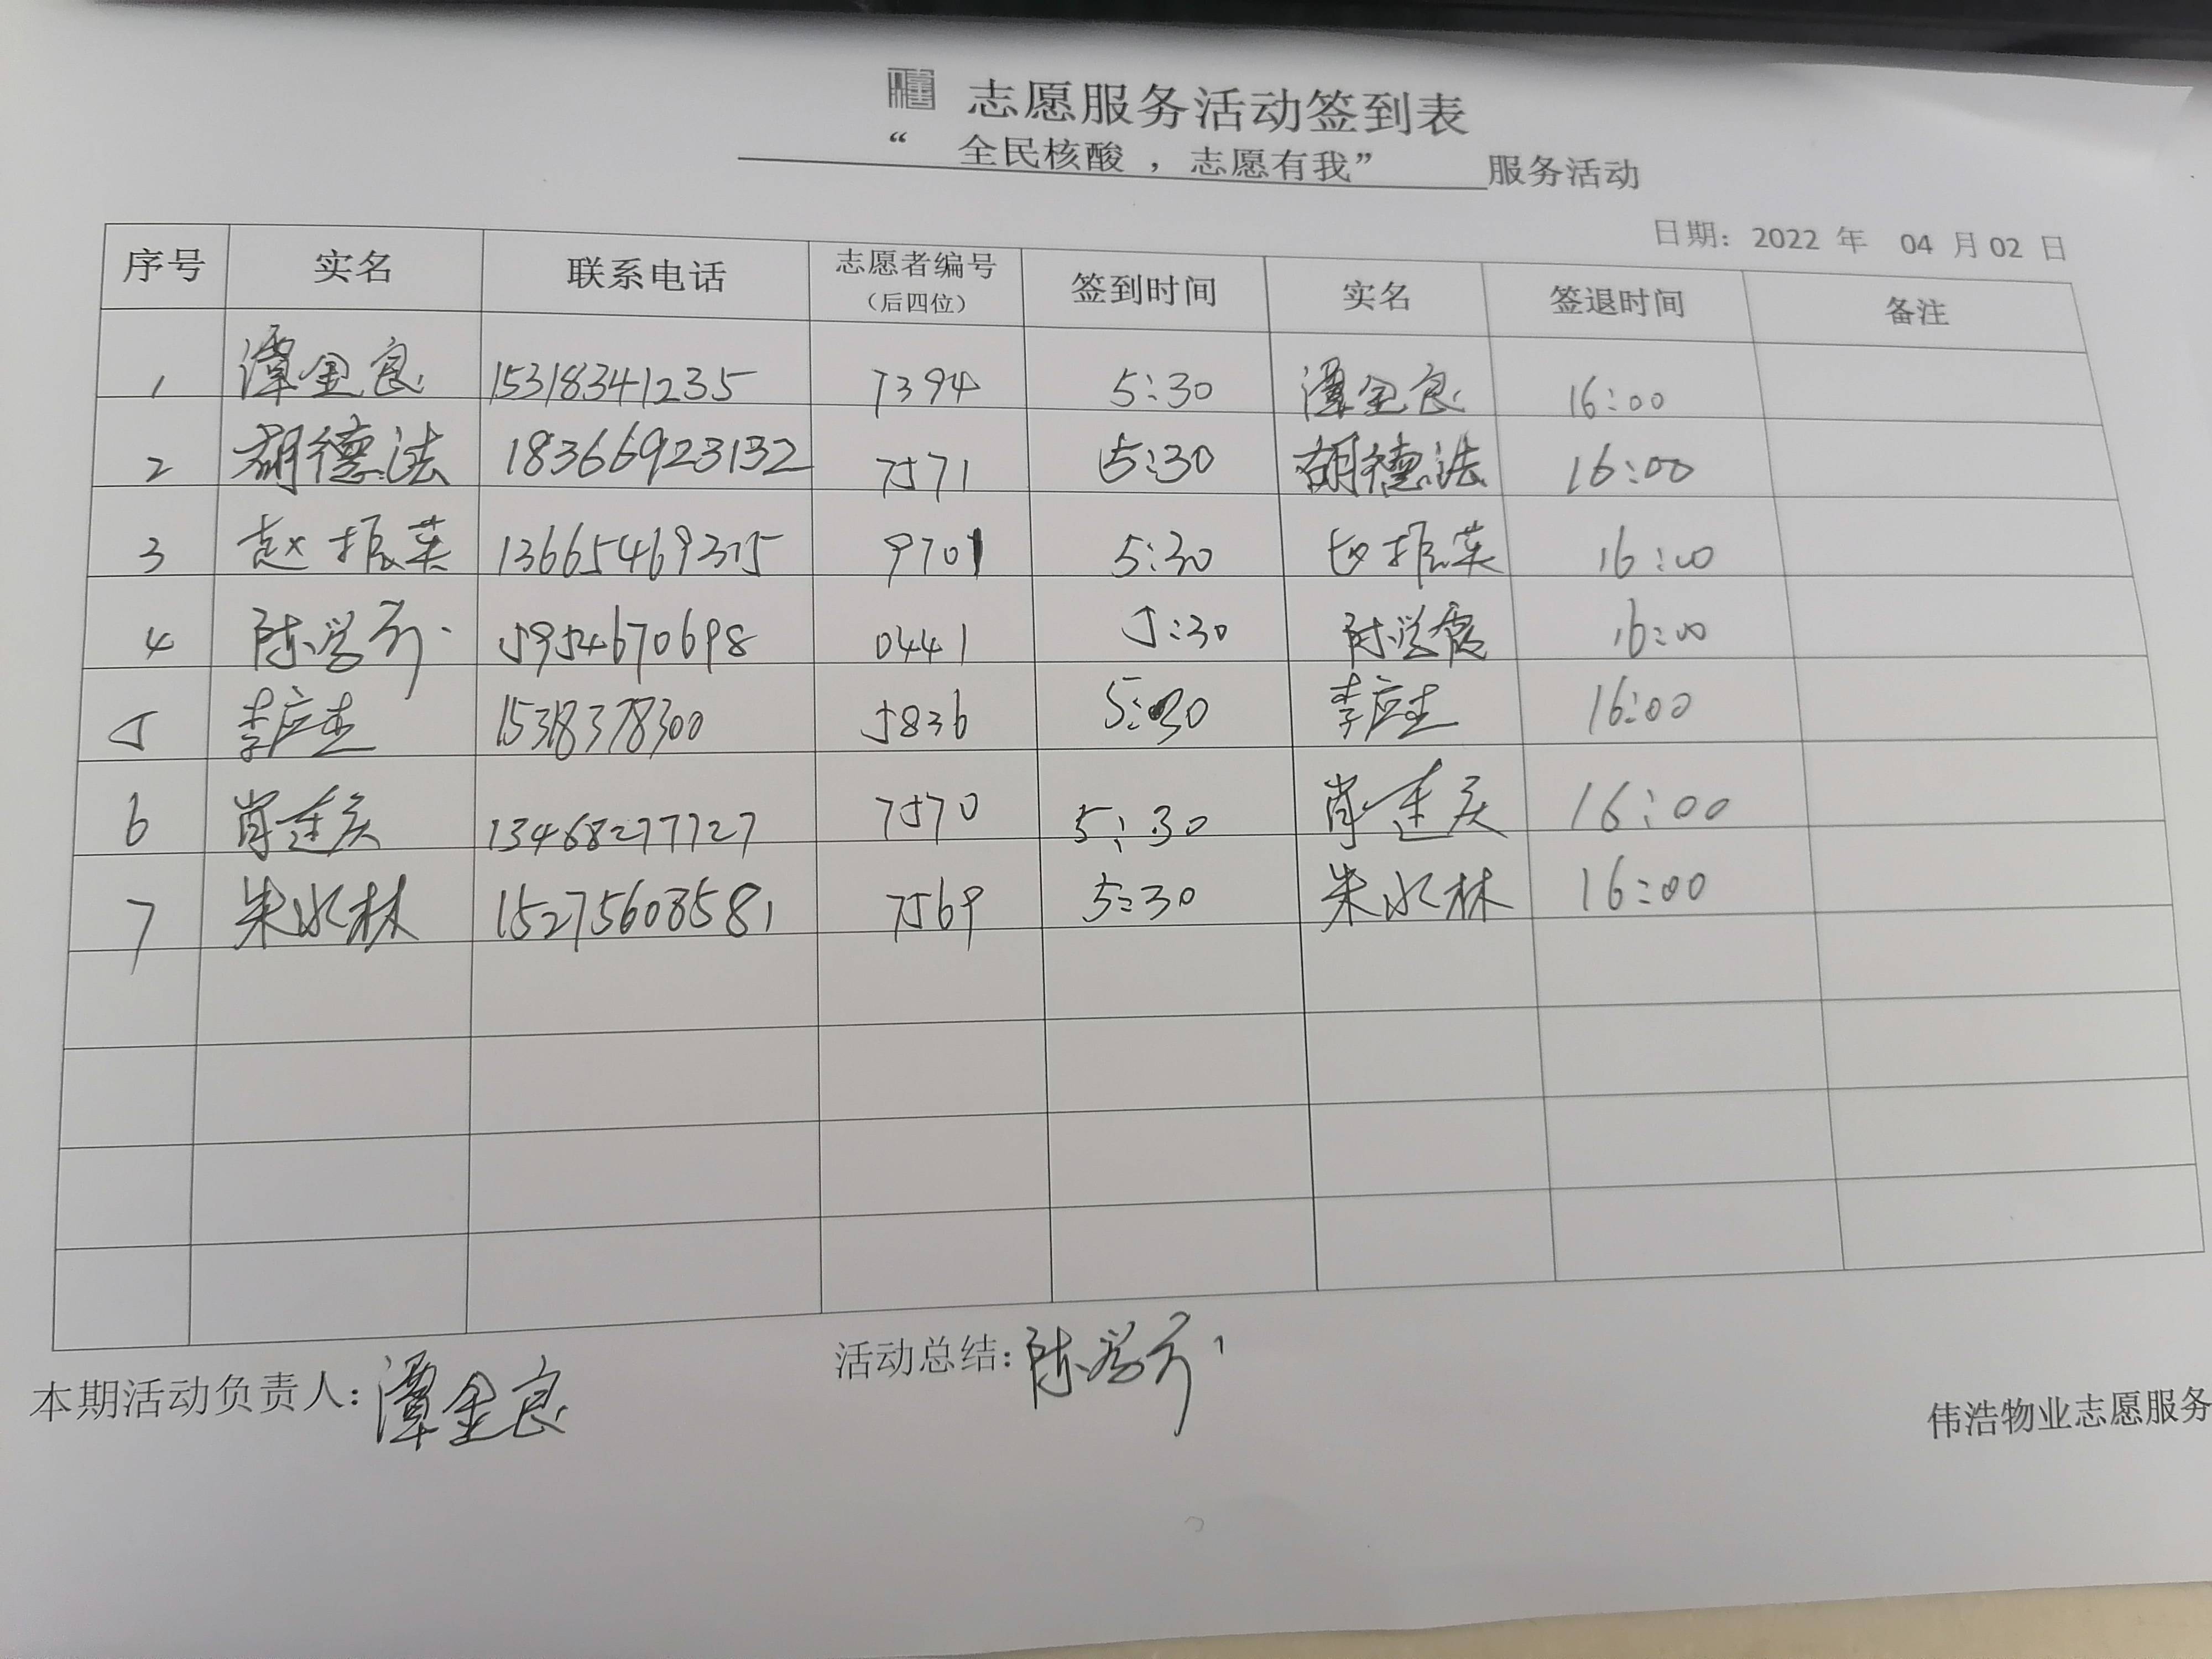 志愿服务活动签到表
“ 全民核酸 ，志愿有我” 服务活动
日期：2022 年 04 月 02 日
序号 实名 联系电话 志愿者编号（后四位） 签到时间 实名 签退时间 备注
1 谭金良 15318341235 7394 5:30 谭金良 16:00
2 胡德法 18366923132 7571 5:30 胡德法 16:00
3 赵振英 13665469375 9701 5:30 振英 16:00
4 陈学 5954670698 0441 5:30 陈学 16:00
5 李应杰 15318378300 5836 5:30 李应杰 16:00
6 肖连庆 13468277727 7570 5:30 肖连庆 16:00
7 朱永林 15275608581 7569 5:30 朱永林 16:00
本期活动负责人：谭金良 活动总结：陈学
伟浩物业志愿服务